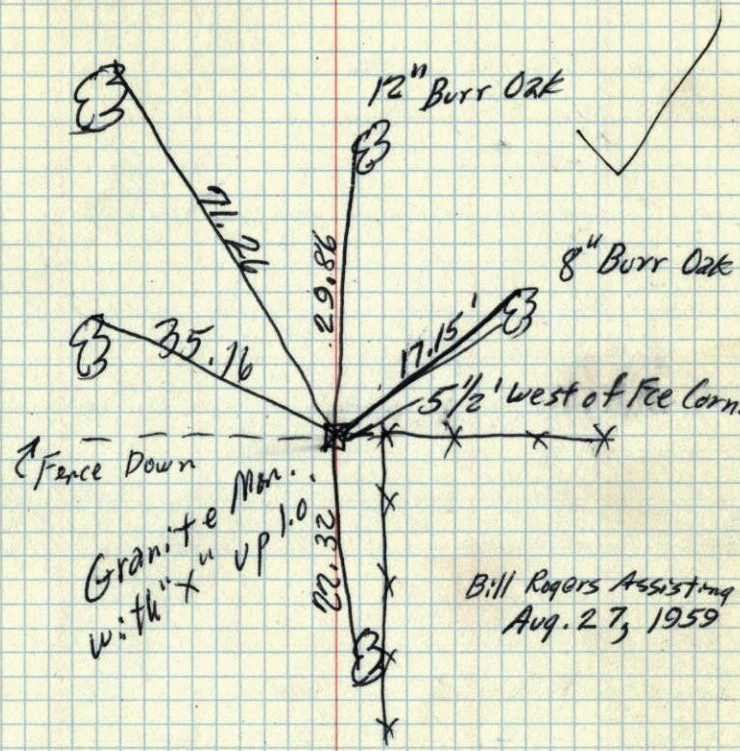 12" Burr Oak
71.26
29.86
8" Burr Oak
35.16
17.15'
5 1/2' West of Fce Corn.
Fence Down
Granite Mon.
with "x" up 1.0.
22.32
Bill Rogers Assisting
Aug. 27, 1959